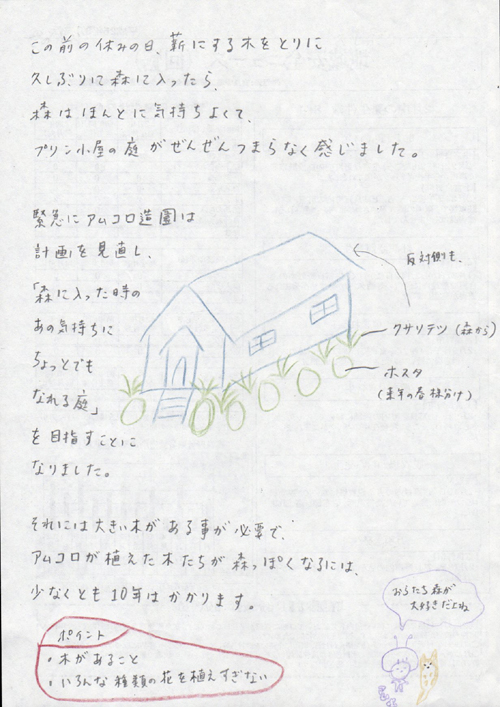 この前の休みの日、薪にする木をとりに
久しぶりに森に入ったら、
森はほんとに気持ちよくて、
プリン小屋の庭がぜんぜんつまらなく感じました。
緊急にアムコロ造園は
計画を見直し、
「森に入った時の
あの気持ちに
ちょっとでも
なれる庭」
を目指すことに
なりました。
反対側も、
クサソテツ(森から)
ホスタ
(来年の春株分け)
それには大きい木がある事が必要で、
アムコロが植えた木たちが森っぽくなるには、
少なくとも10年はかかります。
ポイント
・木があること
・いろんな種類の花を植えすぎない
おらたち森が
大好きだよね